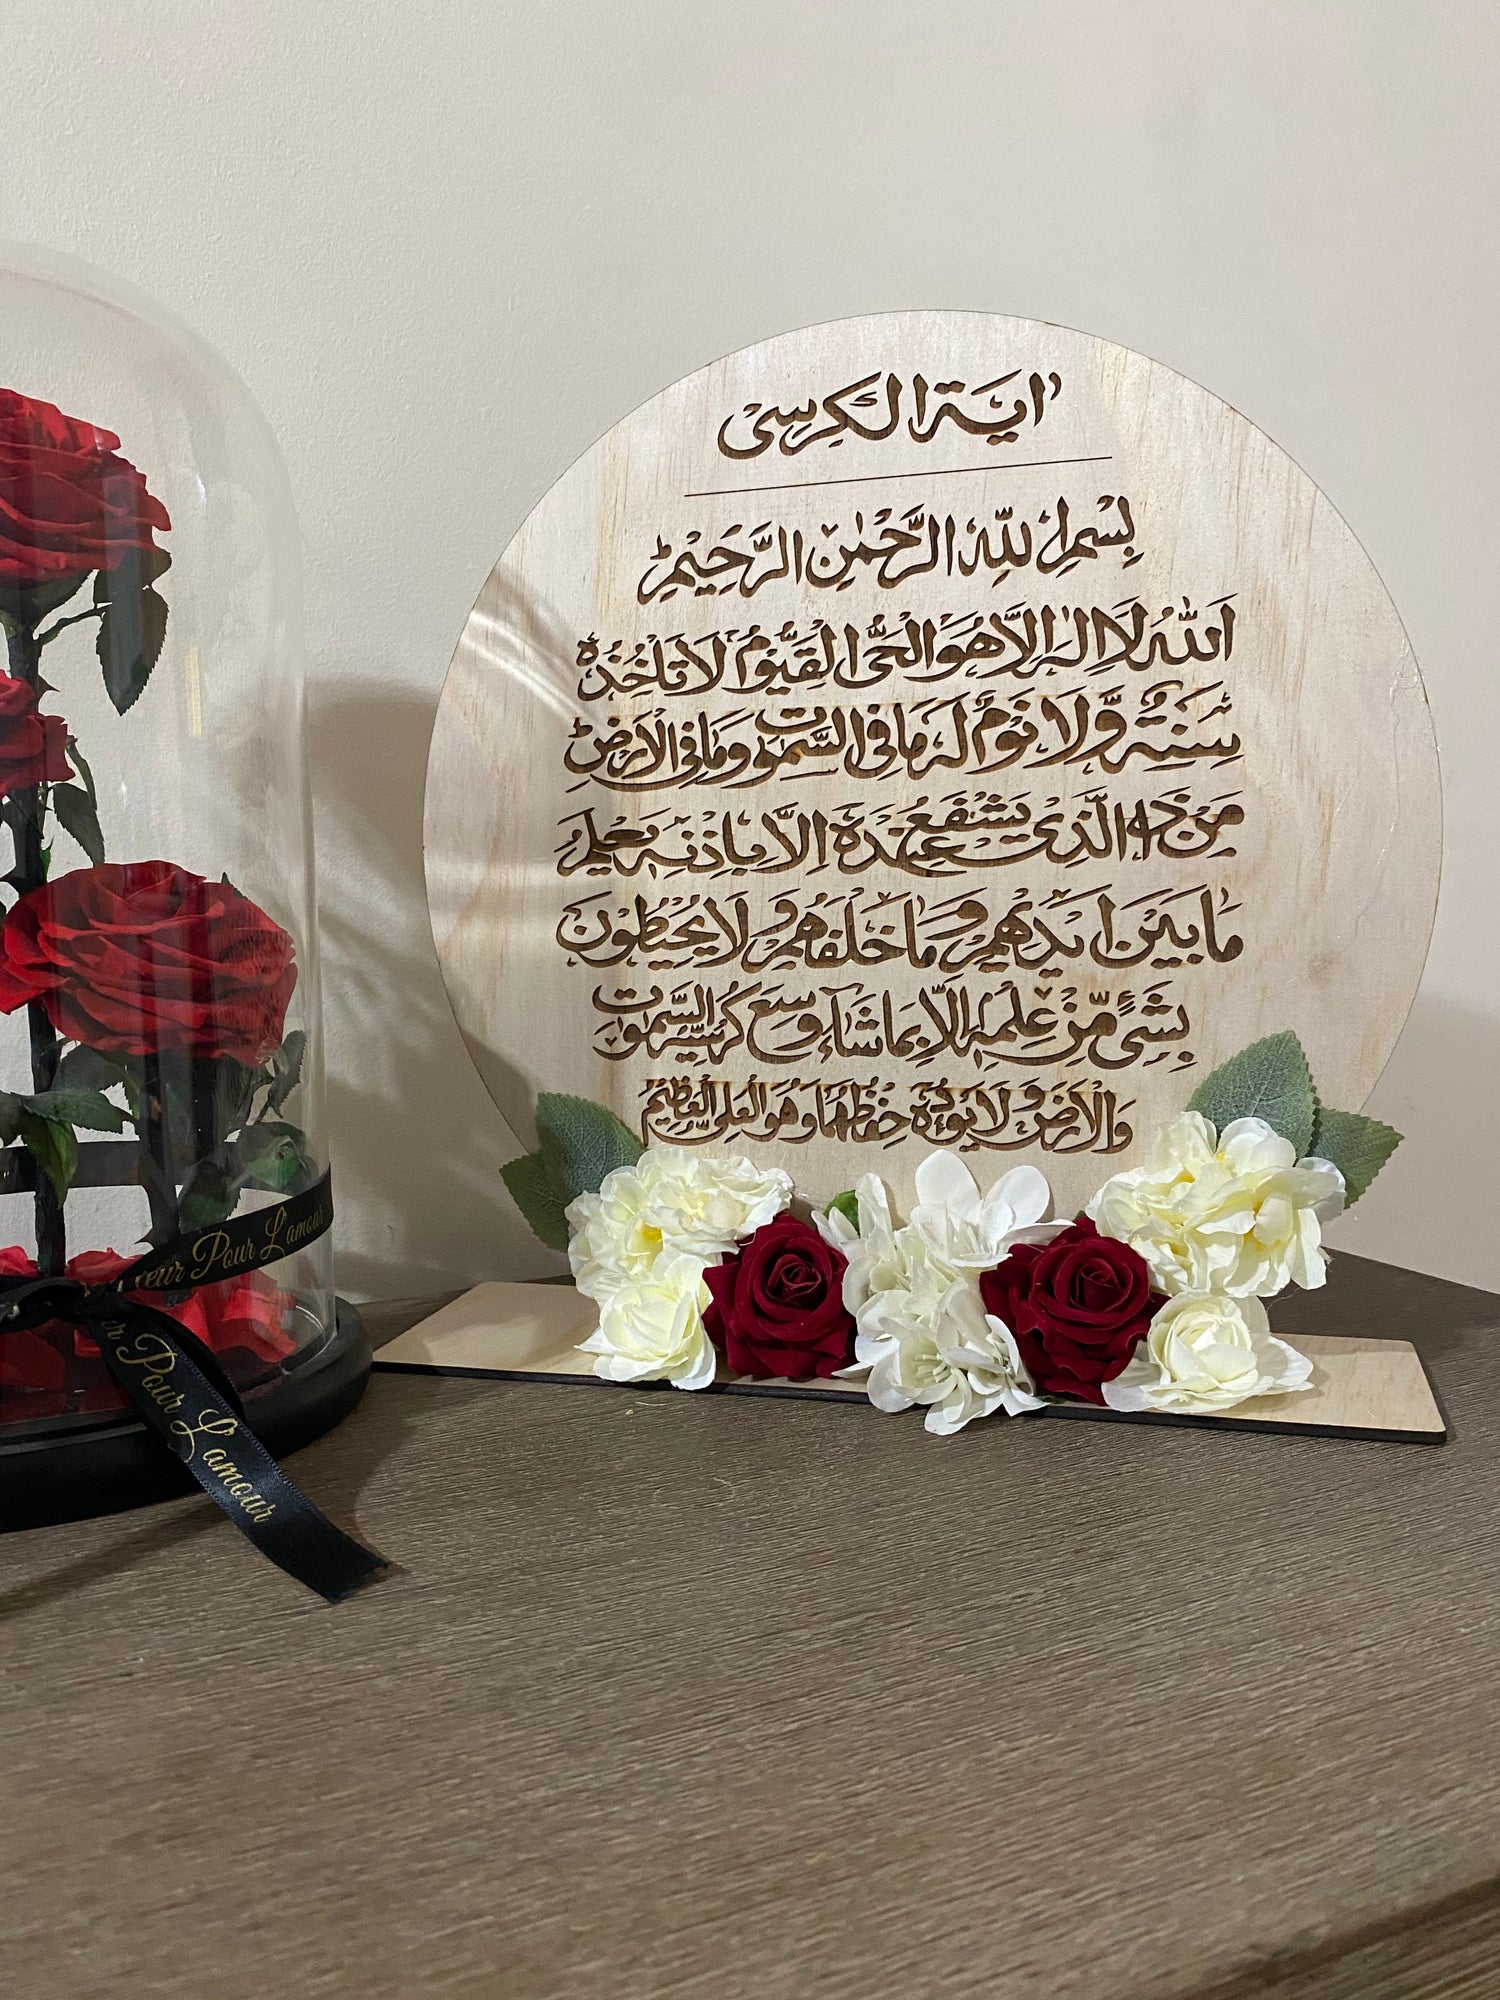 اٰية الكرسى
بِسْمِ اللّٰهِ الرَّحْمٰنِ الرَّحِيْمِ
اَللّٰهُ لَا اِلٰهَ اِلَّا هُوَ الْحَىُّ الْقَيُّوْمُ لَا تَاْخُذُهٗ
سِنَةٌ وَّلَا نَوْمٌ لَهٗ مَا فِى السَّمٰوٰتِ وَمَا فِى الْاَرْضِ
مَنْ ذَا الَّذِىْ يَشْفَعُ عِنْدَهٗ اِلَّا بِاِذْنِهٖ يَعْلَمُ
مَا بَيْنَ اَيْدِيْهِمْ وَمَا خَلْفَهُمْ وَلَا يُحِيْطُوْنَ
بِشَىْءٍ مِّنْ عِلْمِهٖ اِلَّا بِمَا شَآءَ وَسِعَ كُرْسِيُّهُ السَّمٰوٰتِ
وَالْاَرْضَ وَلَا يَـُٔوْدُهٗ حِفْظُهُمَا وَهُوَ الْعَلِىُّ الْعَظِيْمُ
Cœur Pour L'amour
ur Pour L'amour